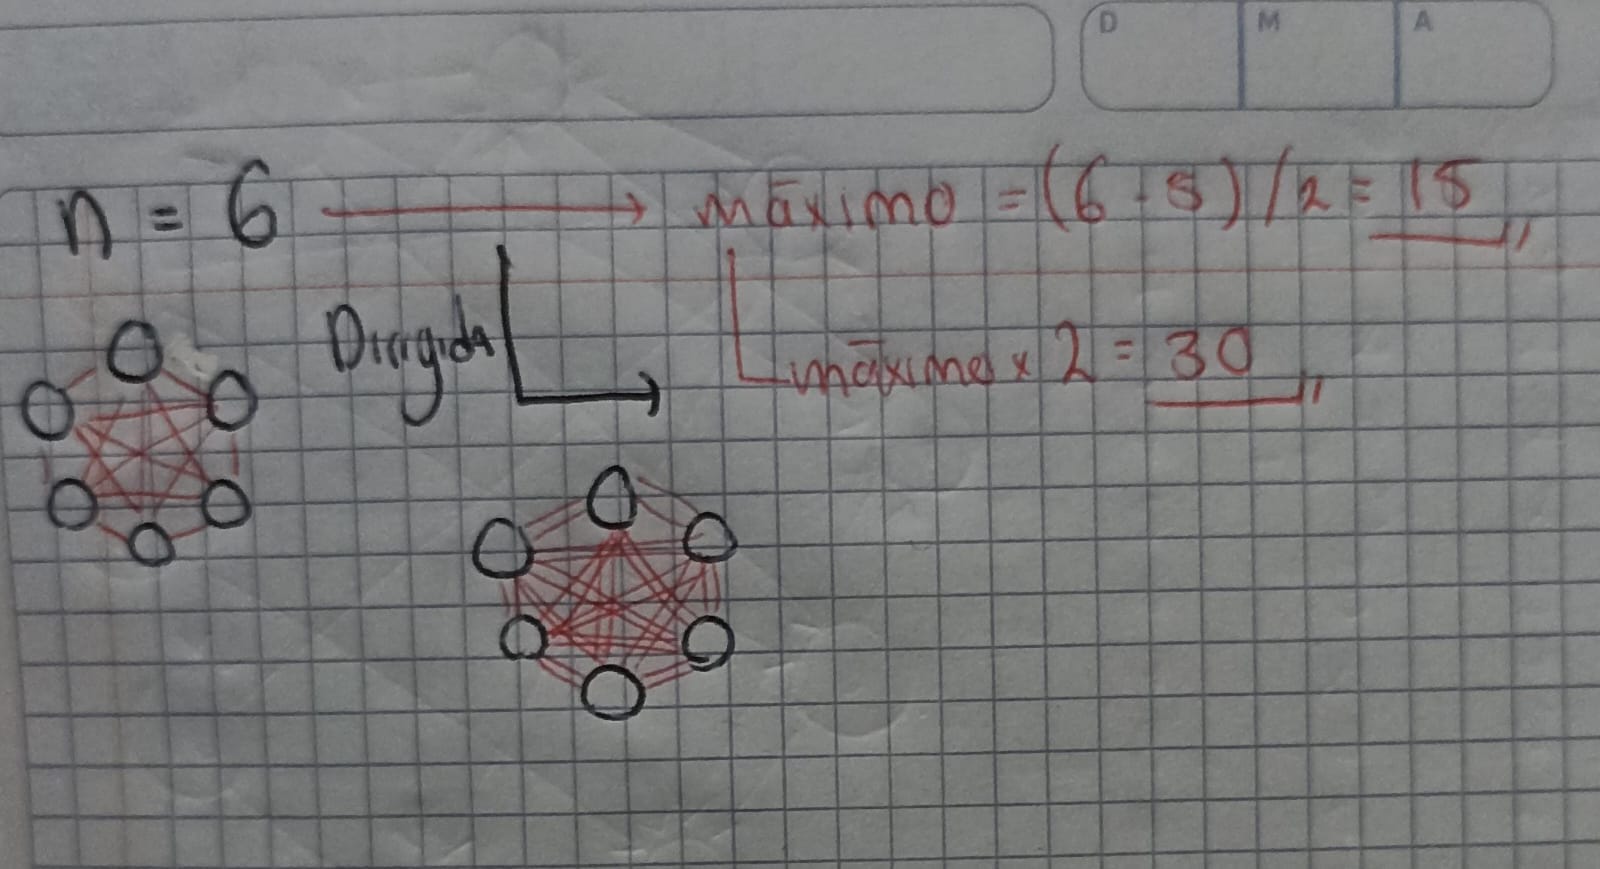 D M A
n = 6 → máximo = (6 · 5) / 2 = 15
Dirigida máximo x 2 = 30